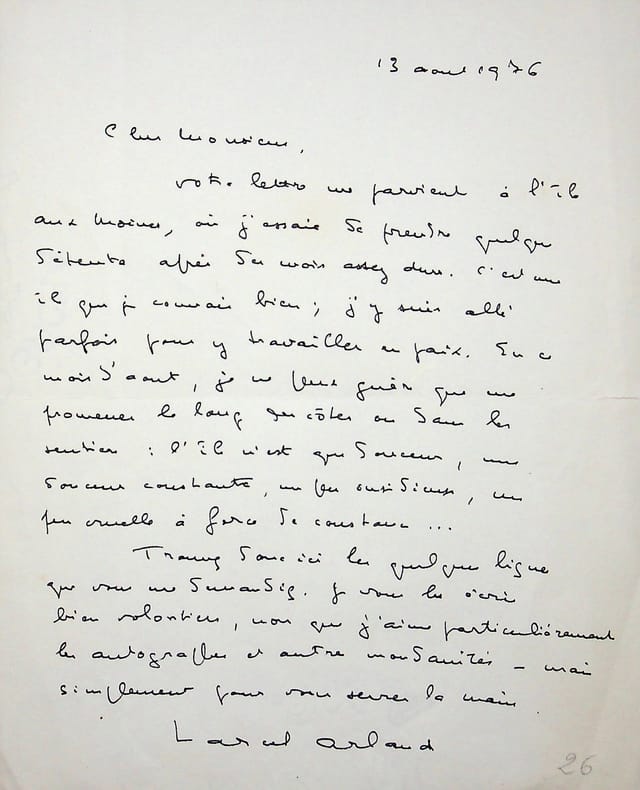 13 août 1976
Cher Monsieur,
votre lettre me parvient à l'île
aux Moines, où j'essaie de prendre quelque
détente après des mois assez durs. C'est une
île que je connais bien ; j'y suis allé
parfois pour y travailler en paix. En ce
mois d'août, je ne peux guère que me
promener le long des côtes ou dans les
sentiers : l'île n'est que douceur, une
douceur constante, un peu insidieuse, un
peu cruelle à force de constance ...
Trouvez donc ici les quelques lignes
que vous me demandiez. Je vous les écris
bien volontiers, non que j'aime particulièrement
les autographes et autres mondanités – mais
simplement pour vous serrer la main.
Marcel Arland
26